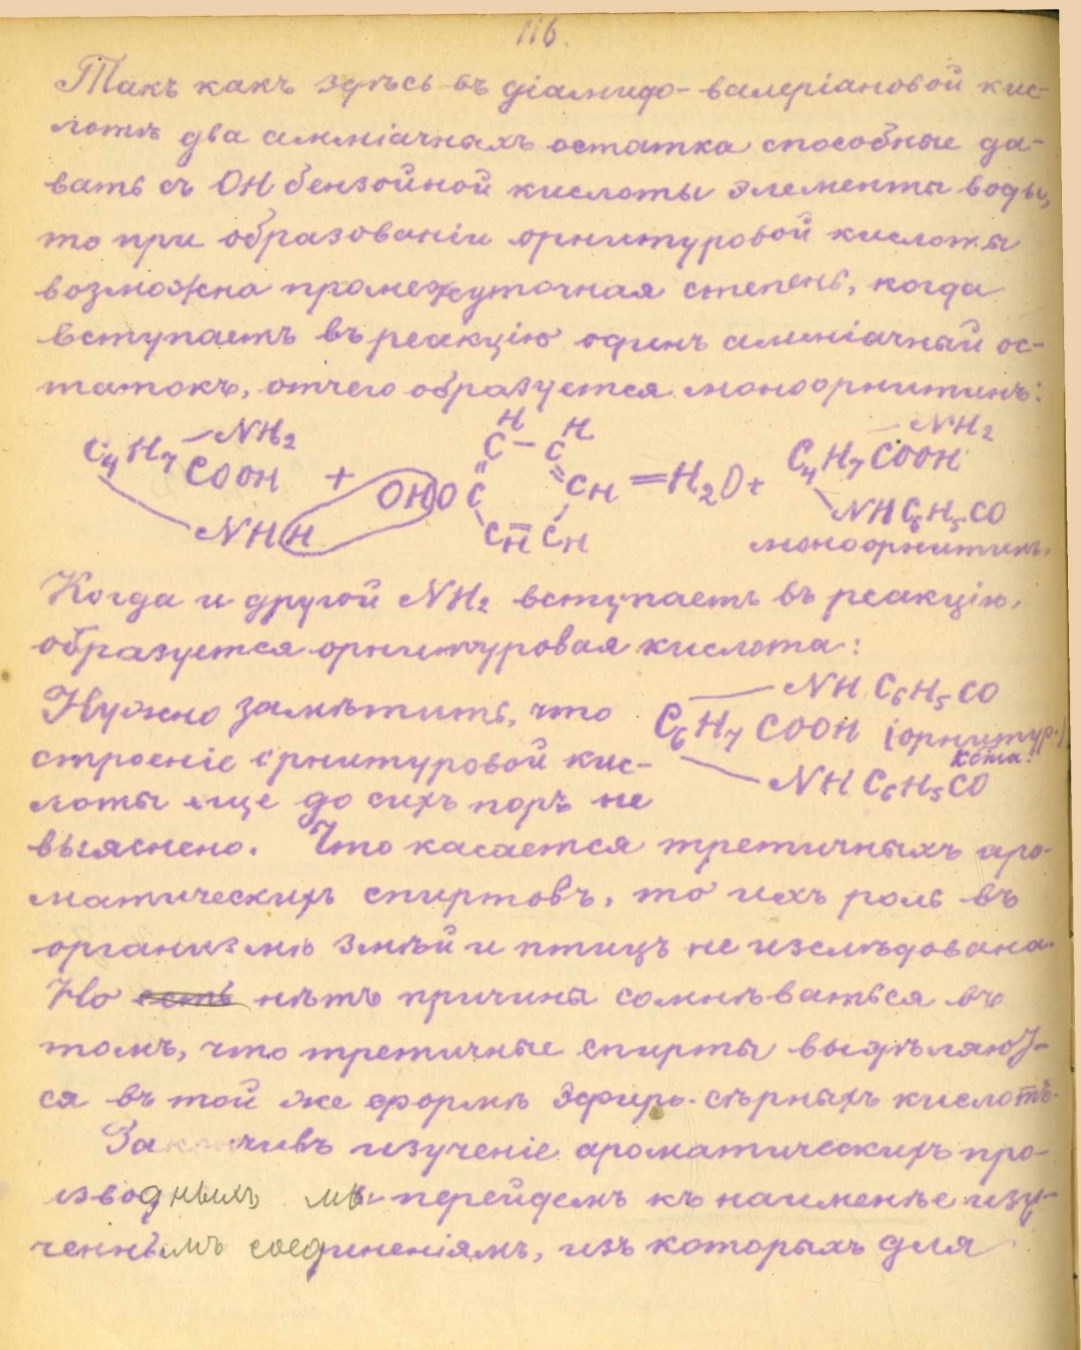 116.
Такъ какъ здѣсь въ діамидо-валеріановой кис-
лотѣ два амміачныхъ остатка способные да-
вать съ ОН бензойной кислоты элементы воды,
то при образованіи орнитуровой кислоты
возможна промежуточная степень, когда
вступаетъ въ реакцію одинъ амміачный ос-
татокъ, отчего образуется моноорнитинъ:
C4H7 —NH2 COOH NHH + OHOC C H – C H CH CH CH = H2O + C4H7 COOH —NH2 NHC6H5CO
моноорнитинъ.
Когда и другой NH2 вступаетъ въ реакцію,
образуется орнитуровая кислота:
Нужно замѣтить, что
строеніе орнитуровой кис-
лоты еще до сихъ поръ не
C6H7 COOH —NH C6H5CO —NH C6H5CO (орнитур. кѣта.)
выяснено. Что касается третичныхъ аро-
матическихъ спиртовъ, то ихъ роль въ
организмѣ змѣй и птицъ не изслѣдована.
Но есть нѣтъ причины сомнѣваться въ
томъ, что третичные спирты выдѣляют-
ся въ той же формѣ эфиро-сѣрныхъ кислотъ.
Закончивъ изученіе ароматическихъ про-
изводныхъ мы перейдемъ къ наименѣе изу-
ченнымъ соединеніямъ, изъ которыхъ для